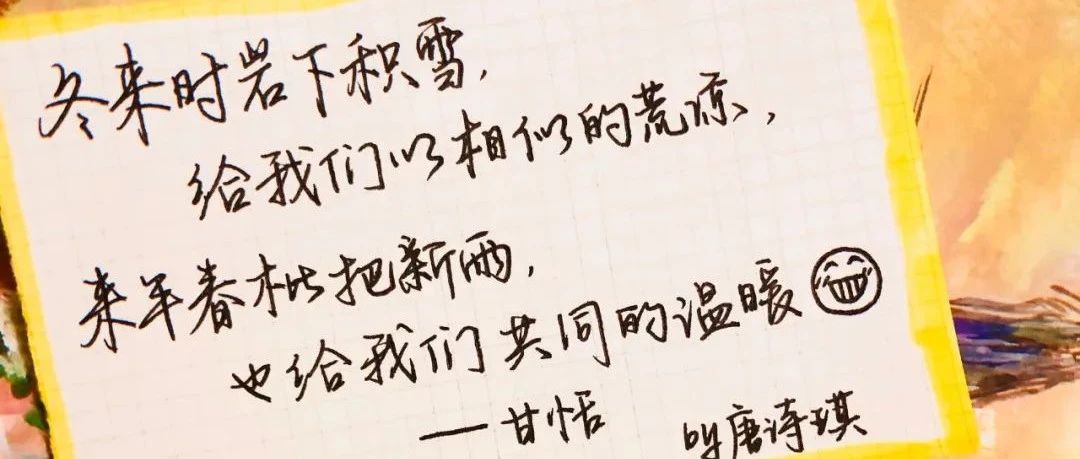 冬来时岩下积雪,
给我们以相似的荒凉,
来年春枇把新雨,
也给我们共同的温暖
——甘恬 唐诗琪